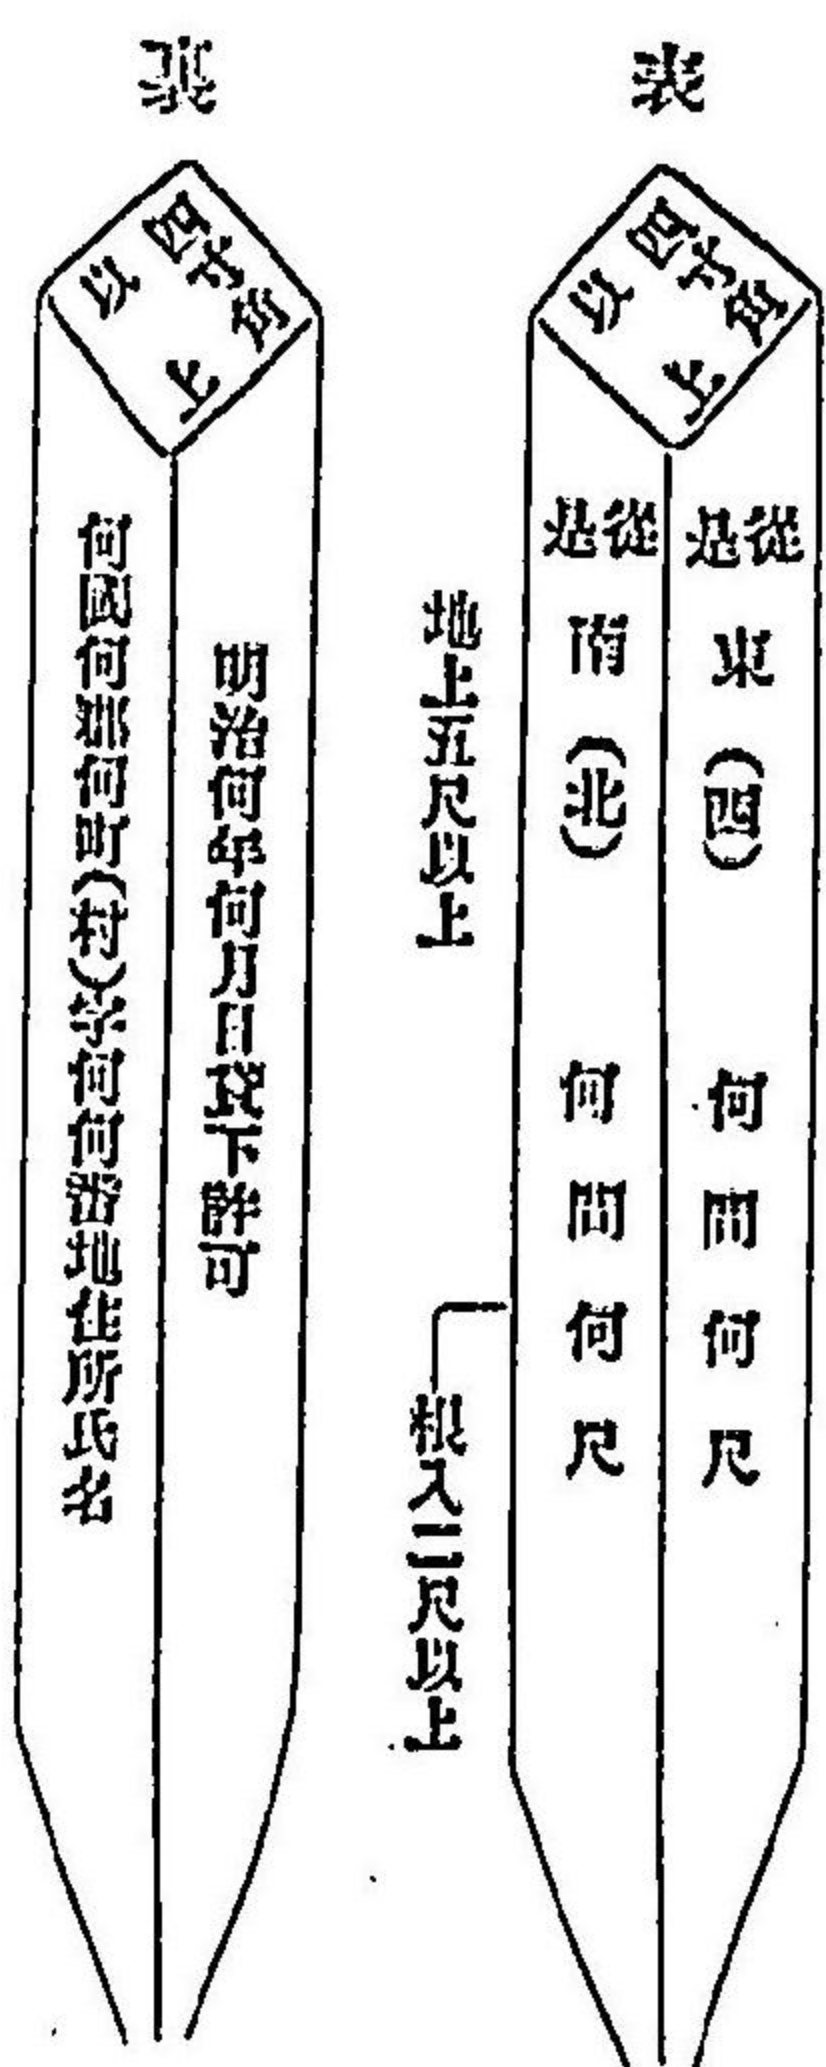 表
四寸角
以上
從是
東(西)
何間何尺
從是
南(北)
何間何尺
地上五尺以上
根入二尺以上
裏
四寸角
以上
明治何年何月日貸下許可
何國何郡何町(村)字何何番地住所氏名